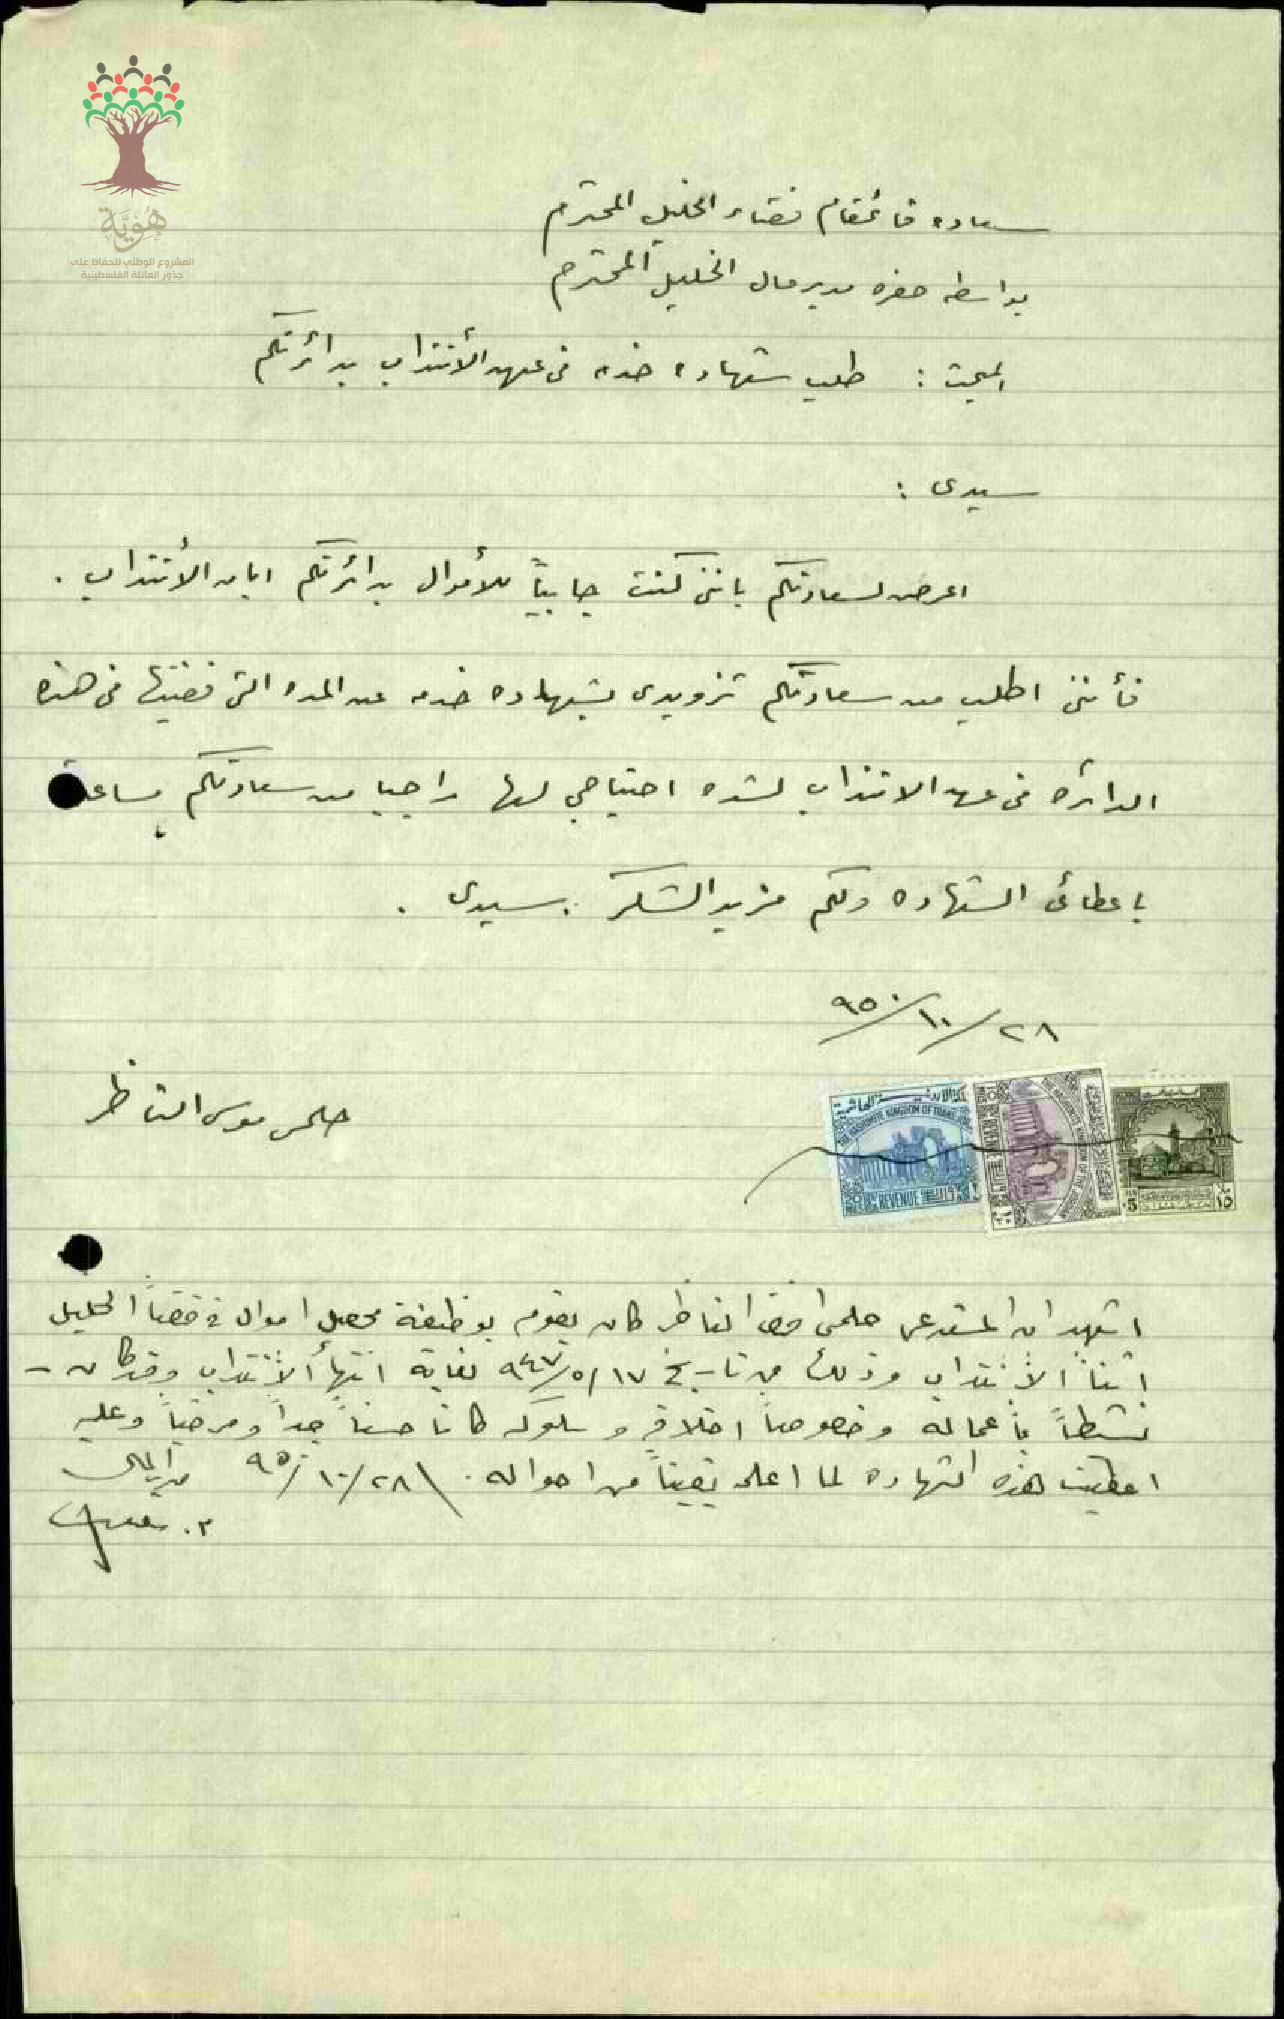 هُوِيَّة
المشروع الوطني للحفاظ على
جذور العائلة الفلسطينية
سعاده قائمقام قضاء الخليل المحترم
بواسطه حضره مدير مال الخليل المحترم
المبحث : طلب شهاده خدمه في عهد الأنتداب بدائرتكم
سيدى :
اعرض لسعادتكم بانني كنت جابياً للأموال بدائرتكم ايام الأنتداب .
فأنني اطلب من سعادتكم تزويدى بشهاده خدمه عن المده التي قضيتها في هذه
الدائره في عهد الانتداب لشده احتياجي لها راجيا من سعادتكم
باعطائى الشهاده ولكم مزيد الشكر سيدى .
٢٨/١٠/٩٥٠
حلمى موسى الناظر
THE HASHEMITE KINGDOM OF
REVENUE
١٥
اشهد ان المستدعى حلمي افندي الناظر كان يقوم بوظيفة محصل اموال في قضاً الخليل
اثناً الأنتداب وذلك من تاريخ ١٧/٥/٩٤٧ لغاية انتهاً الأنتداب وقد كان -
نشيطاً بأعماله وخصوصاً اخلاقه وسلوكه كانا حسناً جداً ومرضياً وعليه
اعطيت هذه الشهاده لما اعلمه يقيناً من احواله . ٢٨/١٠/٩٥٠ مدير المال